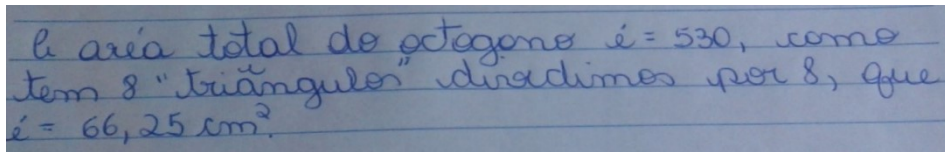 A aréa total do octogono é = 530, como
tem 8 "triângulos" dividimos por 8, que
é = 66,25 cm².